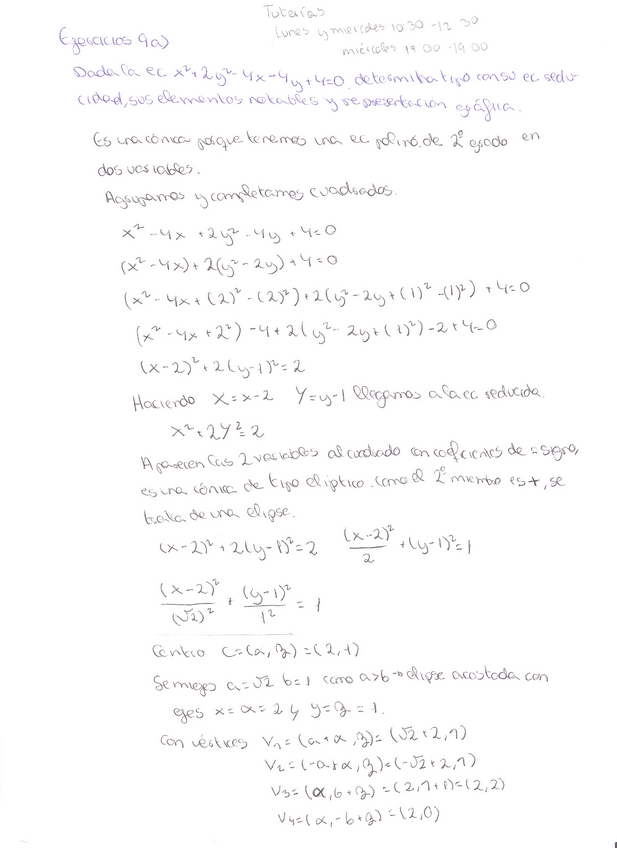 Tutorías
lunes y miércoles 10:30 - 12:30
miércoles 17:00 - 19:00
Ejercicios 9a)
Dada la ec x²+2y²-4x-4y+4=0, determina tipo con su ec redu-
cidad, sus elementos notables y representación gráfica.
Es una cónica porque tenemos una ec polinó. de 2º grado en
dos variables.
Agrupamos y completamos cuadrados.
x² -4x + 2y² - 4y + 4=0
(x² -4x)+ 2(y² -2y)+4=0
(x² -4x+(2)² -(2)²)+2(y² -2y+(1)² -(1)²) + 4=0
(x² -4x+2²) -4+2(y² -2y+(1)²)-2+4=0
(x-2)² +2(y-1)²=2
Haciendo X=x-2 Y=y-1 llegamos a la ec reducida.
X²+2Y²=2
Aparecen las 2 variables al cuadrado con coeficientes de = signo,
es una cónica de tipo elíptico. como el 2º miembro es +, se
trata de una elipse.
(x-2)²+2(y-1)²=2 (x-2)²/2 +(y-1)²=1
(x-2)²/(√2)² + (y-1)²/1² = 1
Centro C=(α,β)=(2,1)
Semiejes a=√2 b=1 como a>b → elipse acostada con
ejes x=α=2 y y=β=1.
Con vértices V₁=(a+α,β)=(√2+2,1)
V₂=(-a+α,β)=(-√2+2,1)
V₃=(α,b+β)=(2,1+1)=(2,2)
V₄=(α,-b+β)=(2,0)